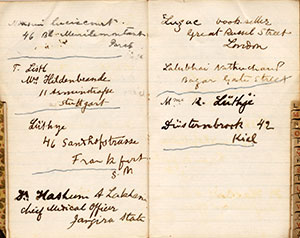 46 Bd Menilmontant
Paris
T. Listh
Mrs Hildenbrande
11 strasse
Stuttgart
Lüthge
46 Sandhofstrasse
Frankfurt
S. M
Dr. Hashum A Lakham
chief Medical Officer
Janjira State
Luzac book seller
Great Russel Street
London
Lalubhai Nathuchand
Bazar Gate Street
Mme R. Lüthje
Düsternbrook 42
Kiel